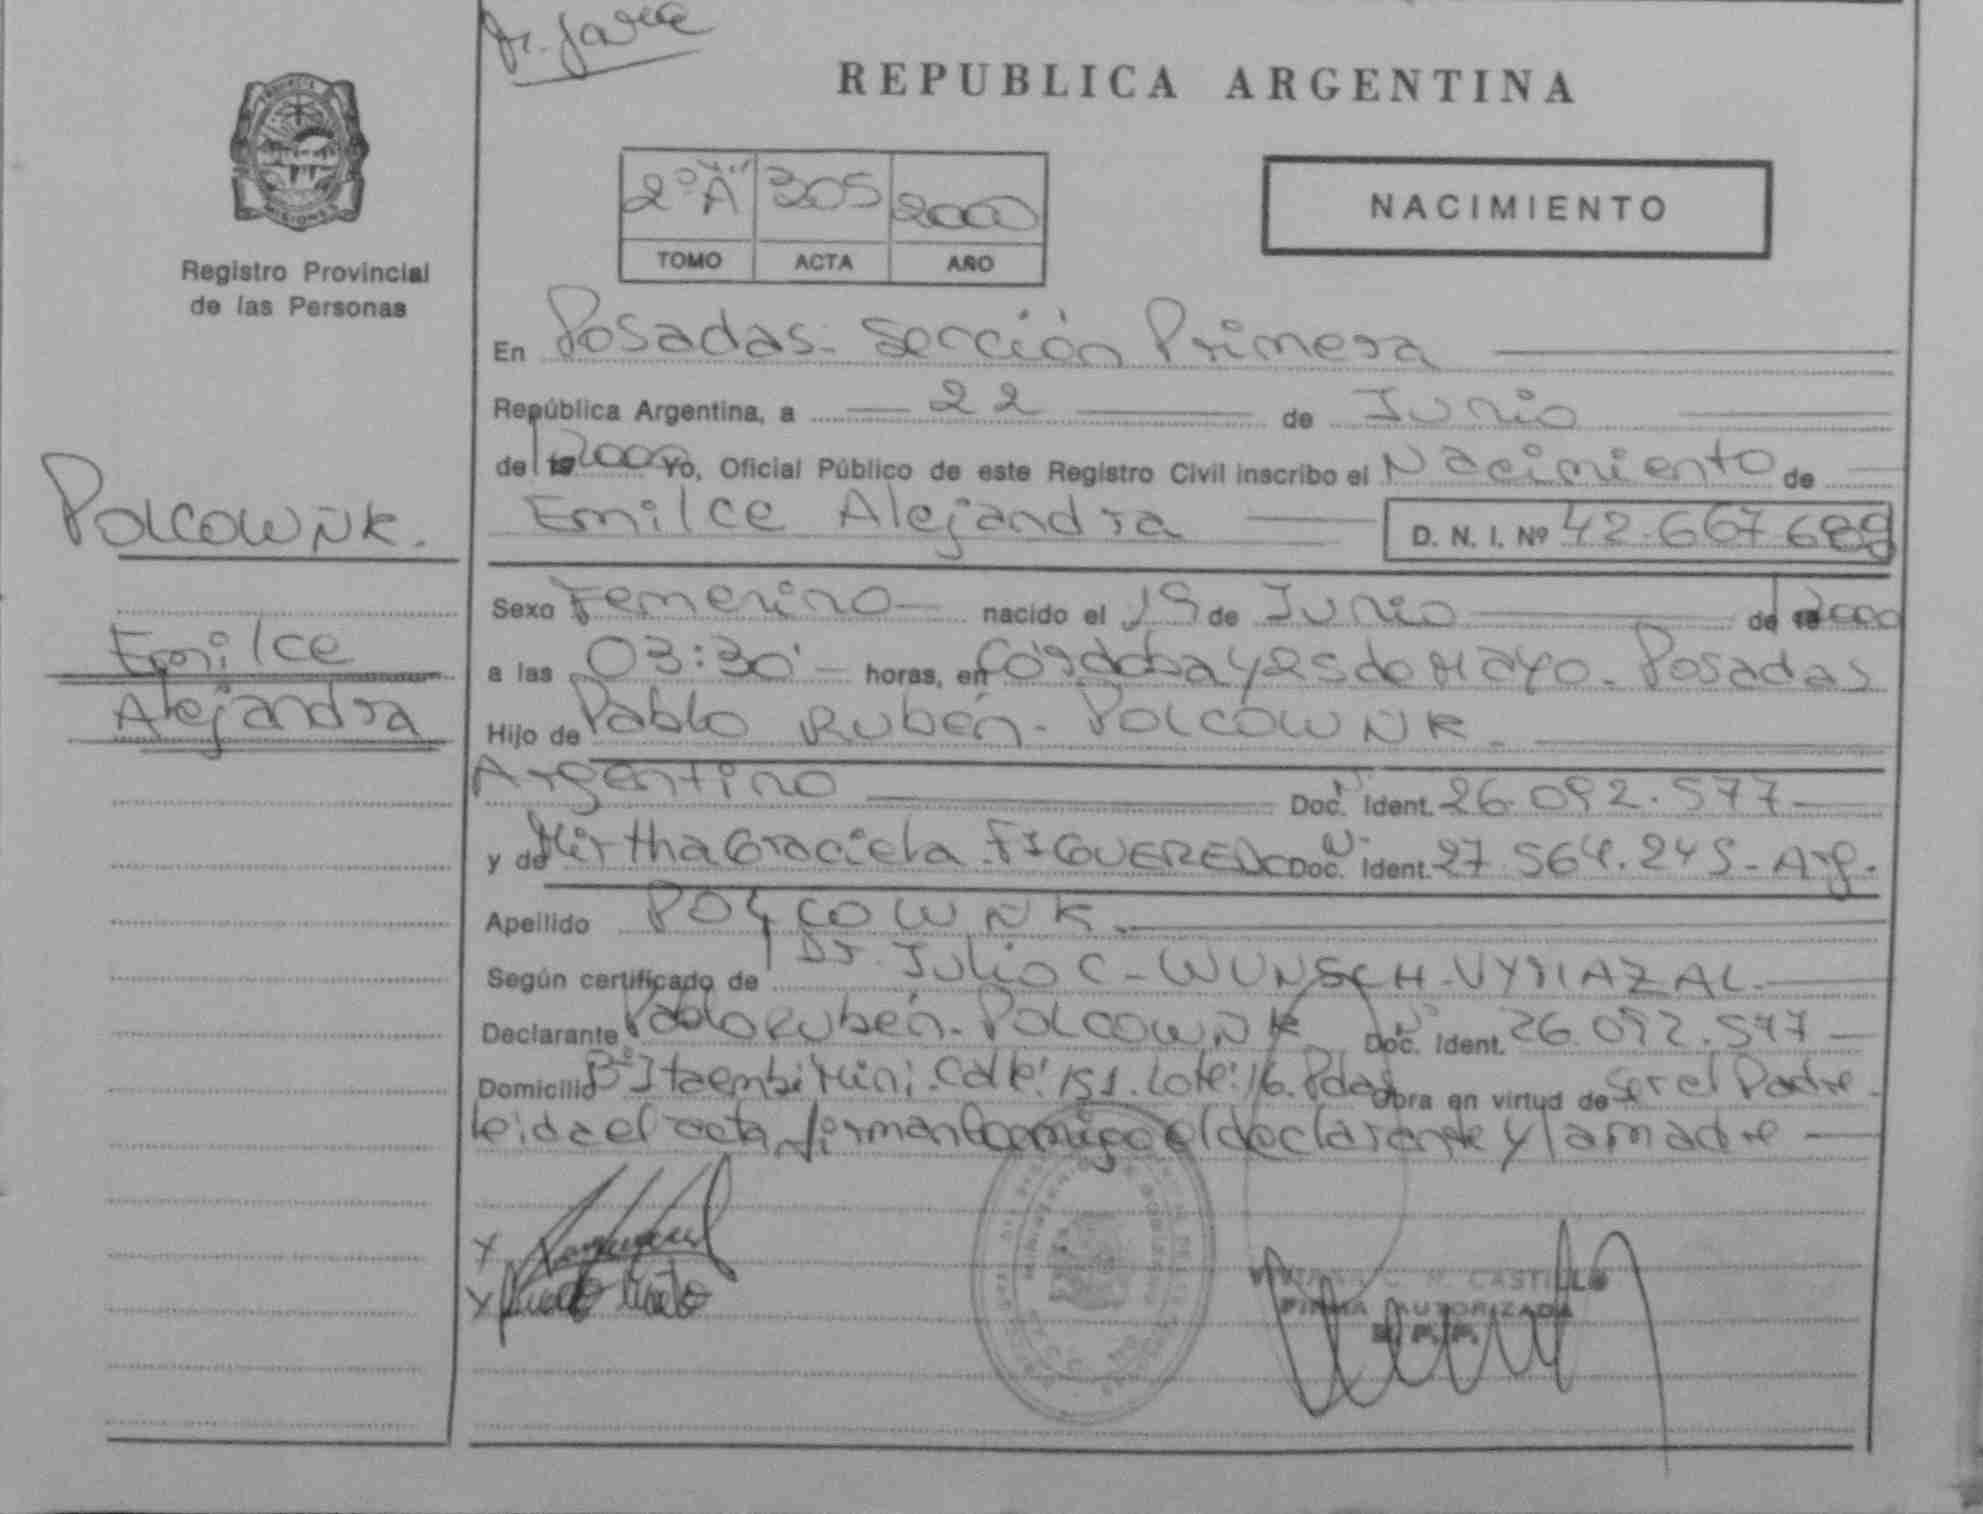 REPUBLICA ARGENTINA
Registro Provincial
de las Personas
2º "A" 305 2000
TOMO ACTA AÑO
NACIMIENTO
POLCOWÑK.
Emilce
Alejandra
En Posadas - Sección Primera
República Argentina, a 22 de Junio
de 2000 Yo, Oficial Público de este Registro Civil inscribo el Nacimiento de
Emilce Alejandra D. N. I. Nº 42.667.689
Sexo Femenino nacido el 19 de Junio de 2000
a las 03:30' horas, en Córdoba y 25 de Mayo - Posadas
Hijo de Pablo Rubén - POLCOWÑK.
Argentino Doc. Ident. 26.092.577
y de Mirtha Graciela FIGUEREDO Doc. Ident. 27.564.245 - Arg.
Apellido POLCOWÑK.
Según certificado de Dr. Julio C - WUNSCH - VYMAZAL.
Declarante Pablo Rubén - POLCOWÑK Doc. Ident. 26.092.577
Domicilio Bº Itaembé Mini. Calle: 151. Lote: 16. Pdas Obra en virtud de Ser el Padre.
leida el acta, firman conmigo el declarante y la madre
CASTILLO
FIRMA AUTORIZADA
R. P. P.